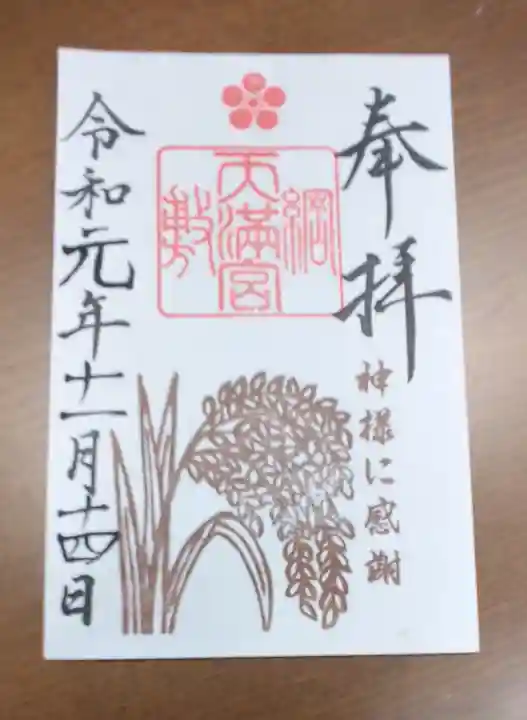 奉拝
神様に感謝
綱敷
天満宮
令和元年十一月十四日